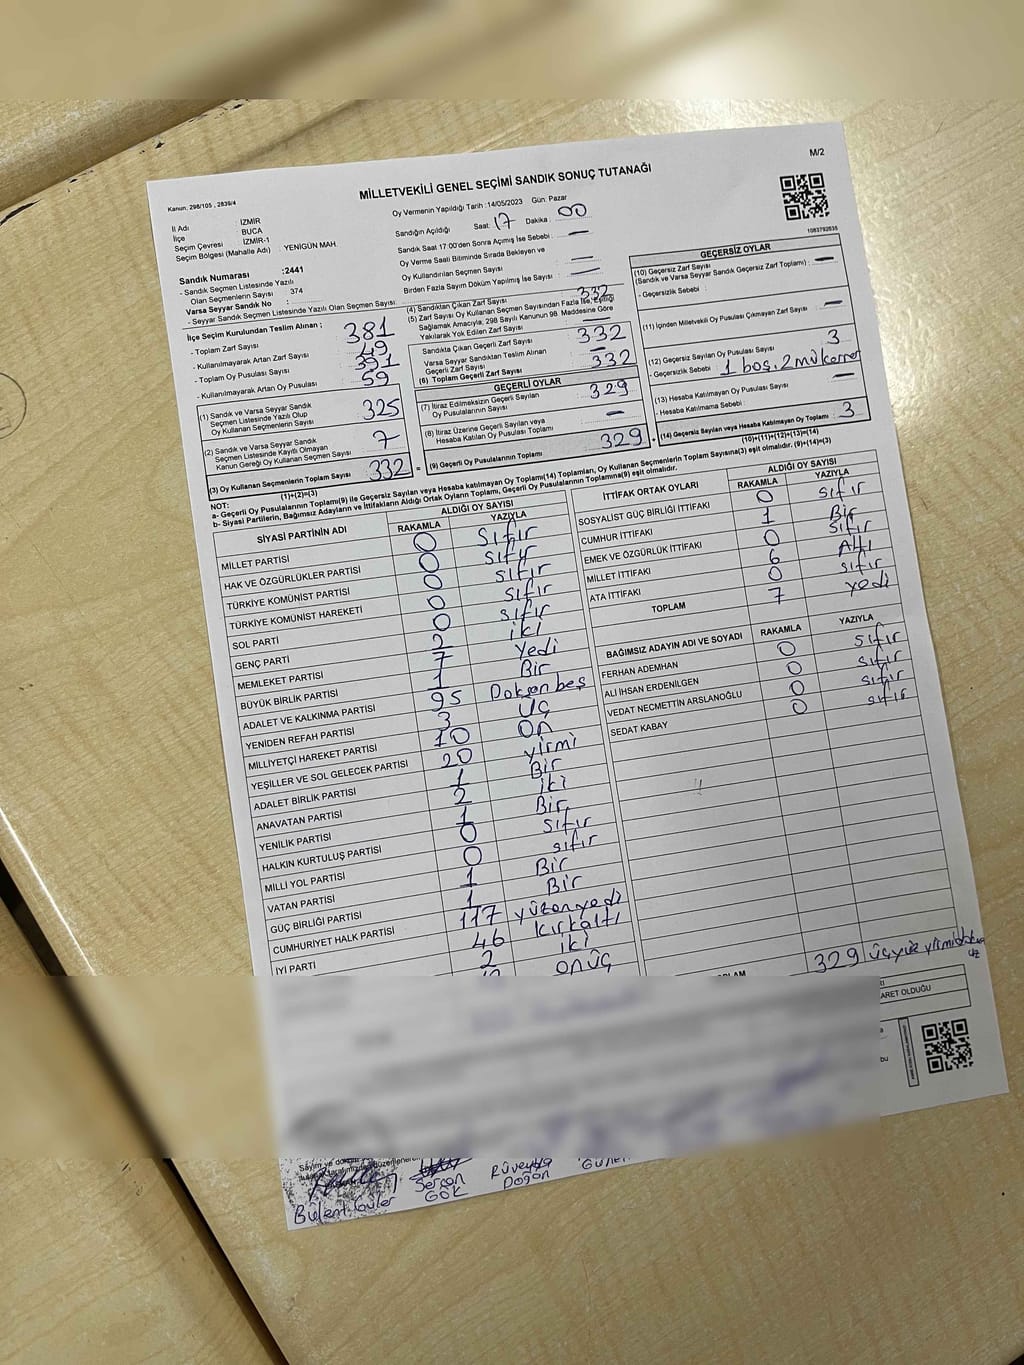 M/2
MİLLETVEKİLİ GENEL SEÇİMİ SANDIK SONUÇ TUTANAĞI
Kanun: 298/105 , 2839/4
Oy Vermenin Yapıldığı Tarih :14/05/2023 Gün: Pazar
İl Adı : İZMİR
İlçe : BUCA
Seçim Çevresi : İZMİR-1
Seçim Bölgesi (Mahalle Adı) : YENİGÜN MAH.
Sandık Numarası :2441
- Sandık Seçmen Listesinde Yazılı
Olan Seçmenlerin Sayısı : 374
Varsa Seyyar Sandık No :
- Seyyar Sandık Seçmen Listesinde Yazılı Olan Seçmen Sayısı:
Sandığın Açıldığı Saat: 17 Dakika : 00
Sandık Saat 17:00'den Sonra Açılmış İse Sebebi : —
Oy Verme Saati Bitiminde Sırada Bekleyen ve
Oy Kullandırılan Seçmen Sayısı —
Birden Fazla Sayım Döküm Yapılmış İse Sayısı : —
İlçe Seçim Kurulundan Teslim Alınan ;
- Toplam Zarf Sayısı : 381
- Kullanılmayarak Artan Zarf Sayısı : 49
- Toplam Oy Pusulası Sayısı : 391
- Kullanılmayarak Artan Oy Pusulası : 59
(1) Sandık ve Varsa Seyyar Sandık
Seçmen Listesinde Yazılı Olup
Oy Kullanan Seçmenlerin Sayısı 325
(2) Sandık ve Varsa Seyyar Sandık
Seçmen Listesinde Kayıtlı Olmayan
Kanun Gereği Oy Kullanan Seçmen Sayısı 7
(3) Oy Kullanan Seçmenlerin Toplam Sayısı 332
(1)+(2)=(3)
(4) Sandıktan Çıkan Zarf Sayısı 332
(5) Zarf Sayısı Oy Kullanan Seçmen Sayısından Fazla İse, Eşitliği
Sağlamak Amacıyla, 298 Sayılı Kanunun 98. Maddesine Göre
Yakılarak Yok Edilen Zarf Sayısı —
Sandıkta Çıkan Geçerli Zarf Sayısı 332
Varsa Seyyar Sandıktan Teslim Alınan
Geçerli Zarf Sayısı —
(6) Toplam Geçerli Zarf Sayısı 332
GEÇERLİ OYLAR
(7) İtiraz Edilmeksizin Geçerli Sayılan
Oy Pusulalarının Sayısı 329
(8) İtiraz Üzerine Geçerli Sayılan veya
Hesaba Katılan Oy Pusulası Toplamı —
= (9) Geçerli Oy Pusulalarının Toplamı 329
1083792635
GEÇERSİZ OYLAR
(10) Geçersiz Zarf Sayısı
(Sandık ve Varsa Seyyar Sandık Geçersiz Zarf Toplamı) : —
- Geçersizlik Sebebi :
(11) İçinden Milletvekili Oy Pusulası Çıkmayan Zarf Sayısı : —
(12) Geçersiz Sayılan Oy Pusulası Sayısı 3
- Geçersizlik Sebebi : 1 boş. 2 mükerrer
(13) Hesaba Katılmayan Oy Pusulası Sayısı : —
- Hesaba Katılmama Sebebi :
+ (14) Geçersiz Sayılan veya Hesaba Katılmayan Oy Toplamı : 3
(10)+(11)+(12)+(13)=(14)
NOT:
a- Geçerli Oy Pusulalarının Toplamı(9) ile Geçersiz Sayılan veya Hesaba katılmayan Oy Toplamı(14) Toplamları, Oy Kullanan Seçmenlerin Toplam Sayısına(3) eşit olmalıdır. (9)+(14)=(3)
b- Siyasi Partilerin, Bağımsız Adayların ve İttifakların Aldığı Ortak Oyların Toplamı, Geçerli Oy Pusulalarının Toplamına(9) eşit olmalıdır.
SİYASİ PARTİNİN ADI ALDIĞI OY SAYISI
RAKAMLA YAZIYLA
MİLLET PARTİSİ 0 sıfır
HAK VE ÖZGÜRLÜKLER PARTİSİ 0 sıfır
TÜRKİYE KOMÜNİST PARTİSİ 0 sıfır
TÜRKİYE KOMÜNİST HAREKETİ 0 sıfır
SOL PARTİ 0 sıfır
GENÇ PARTİ 2 iki
MEMLEKET PARTİSİ 7 Yedi
BÜYÜK BİRLİK PARTİSİ 1 Bir
ADALET VE KALKINMA PARTİSİ 95 Doksanbeş
YENİDEN REFAH PARTİSİ 3 Üç
MİLLİYETÇİ HAREKET PARTİSİ 10 On
YEŞİLLER VE SOL GELECEK PARTİSİ 20 yirmi
ADALET BİRLİK PARTİSİ 1 Bir
ANAVATAN PARTİSİ 2 iki
YENİLİK PARTİSİ 1 Bir
HALKIN KURTULUŞ PARTİSİ 0 sıfır
MİLLİ YOL PARTİSİ 0 sıfır
VATAN PARTİSİ 1 Bir
GÜÇ BİRLİĞİ PARTİSİ 1 Bir
CUMHURİYET HALK PARTİSİ 117 yüzonyedi
İYİ PARTİ 46 kırkaltı
2 iki
onüç
İTTİFAK ORTAK OYLARI ALDIĞI OY SAYISI
RAKAMLA YAZIYLA
SOSYALİST GÜÇ BİRLİĞİ İTTİFAKI 0 sıfır
CUMHUR İTTİFAKI 1 Bir
EMEK VE ÖZGÜRLÜK İTTİFAKI 0 sıfır
MİLLET İTTİFAKI 6 Altı
ATA İTTİFAKI 0 sıfır
TOPLAM 7 yedi
BAĞIMSIZ ADAYIN ADI VE SOYADI RAKAMLA YAZIYLA
FERHAN ADEMHAN 0 sıfır
ALİ İHSAN ERDENİLGEN 0 sıfır
VEDAT NECMETTİN ARSLANOĞLU 0 sıfır
SEDAT KABAY 0 sıfır
329 üçyüzyirmidokuz
ARET OLDUĞU
Sayım ve
Bülent Güler
Sercan
GÖK
Rüveyda
Doğan